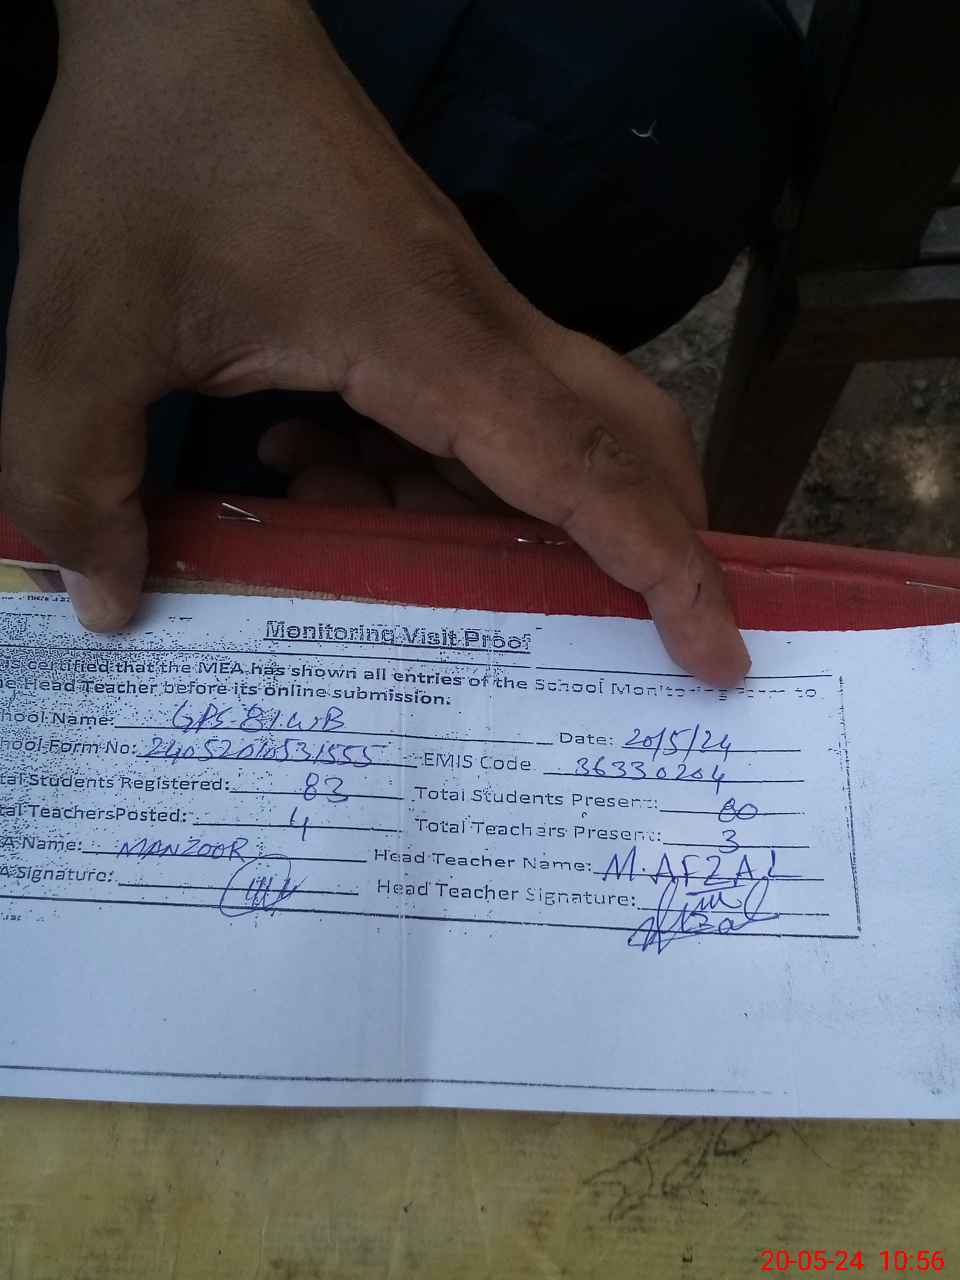 Monitoring Visit Proof
is certified that the MEA has shown all entries of the School Monitoring Form to
e Head Teacher before its online submission.
hool Name: GPS-81.WB Date: 20/5/24
hool Form No: EMIS Code 36330204
tal Students Registered: 83 Total Students Present: 80
tal TeachersPosted: 4 Total Teachers Present: 3
A Name: MANZOOR Head Teacher Name: M.AFZAL
A Signature: Head Teacher Signature: Afzal
20-05-24 10:56